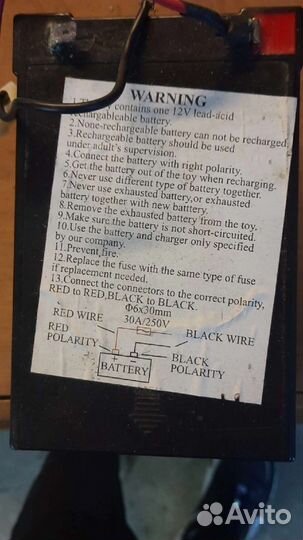 WARNING
1. contains one 12V lead-acid
Rechargableable battery.
2.None-rechargeable battery can not be recharged.
3.Rechargeable battery should be used
under adult's supervision.
4.Connect the battery with right polarity.
5.Get the battery out of the toy when recharging.
6.Never use different type of battery together.
7.Never use exhausted battery,or exhausted
battery together with new batttery.
8.Remove the exhausted battery from the toy.
9.Make sure the battery is not short-circuited.
10.Use the battery and charger only specified
by our company.
11.Prevent fire.
12.Replace the fuse with the same type of fuse
if replacement needed.
13.Connect the connectors to the correct polarity,
RED to RED,BLACK to BLACK.
Φ6x30mm
30A/250V
RED WIRE
BLACK WIRE
RED
POLARITY
+ −
BLACK
POLARITY
BATTERY
Avito